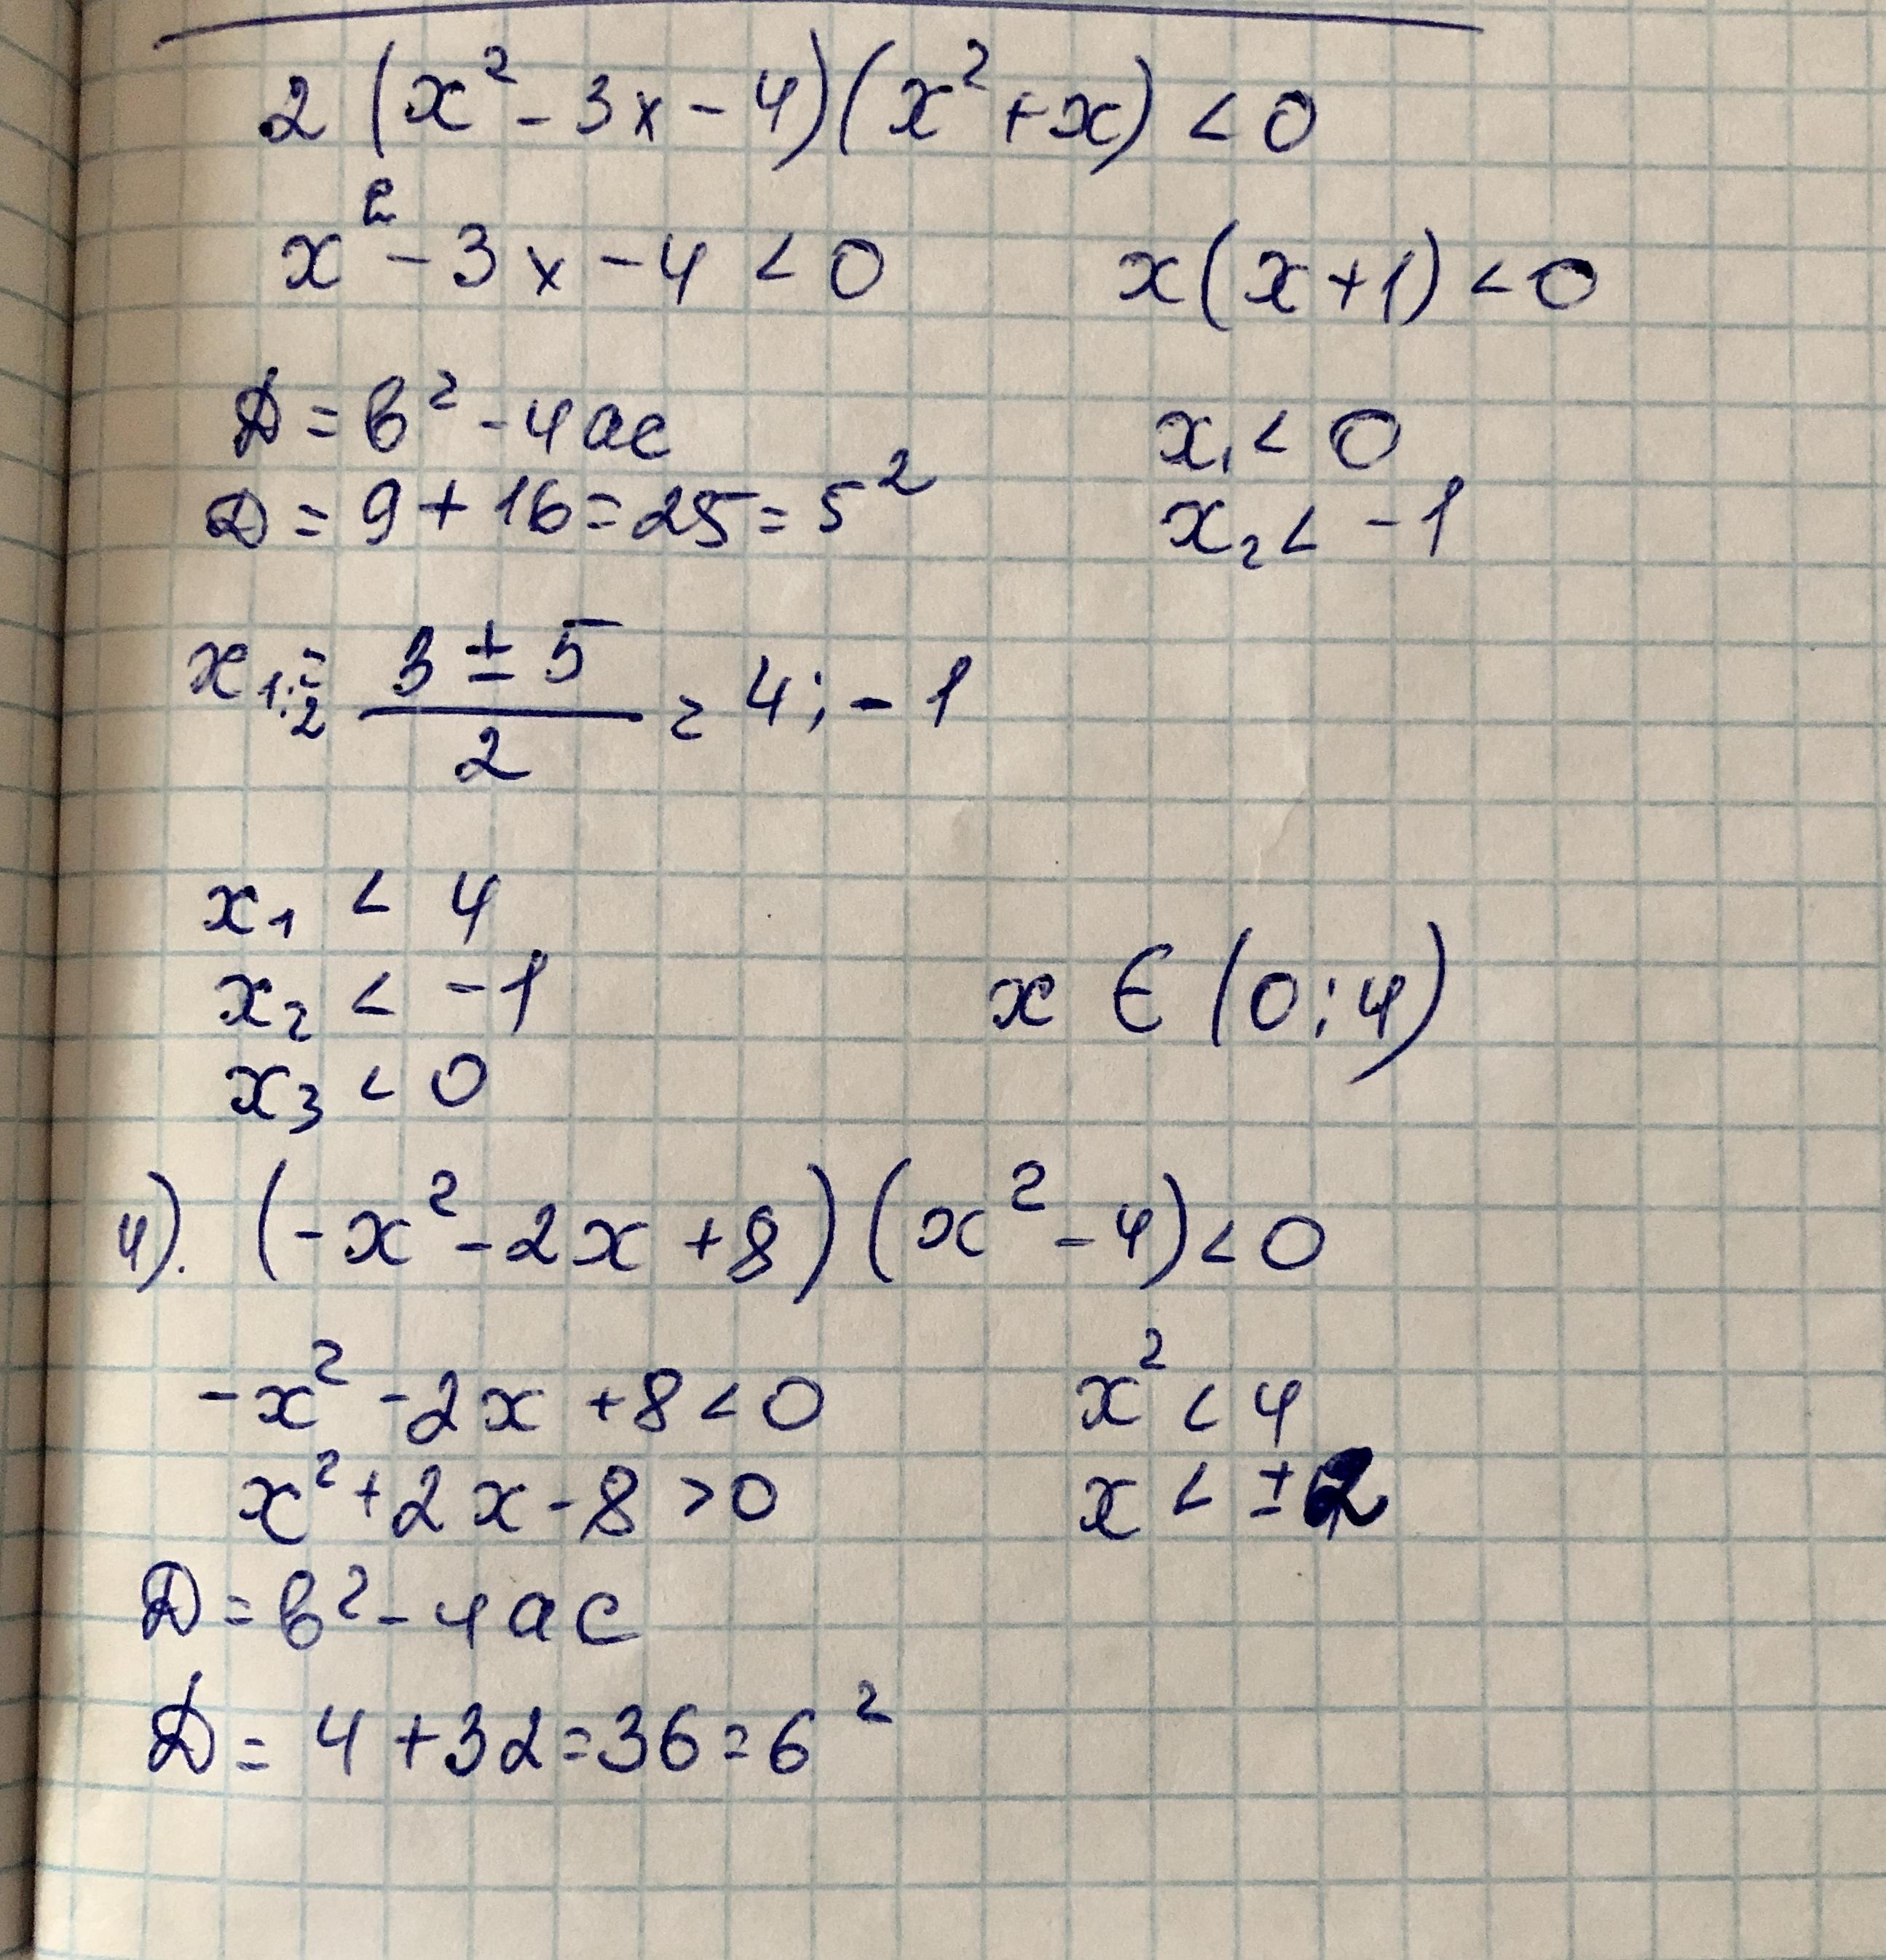 2 (x² - 3x - 4)(x² + x) < 0
x² - 3x - 4 < 0     x(x + 1) < 0
D = b² - 4ac     x₁ < 0
D = 9 + 16 = 25 = 5²     x₂ < -1
x₁;₂ = (3 ± 5)/2 = 4; -1
x₁ < 4
x₂ < -1     x ∈ (0; 4)
x₃ < 0
4). (-x² - 2x + 8)(x² - 4) < 0
-x² - 2x + 8 < 0     x² < 4
x² + 2x - 8 > 0     x < ±2
D = b² - 4ac
D = 4 + 32 = 36 = 6²